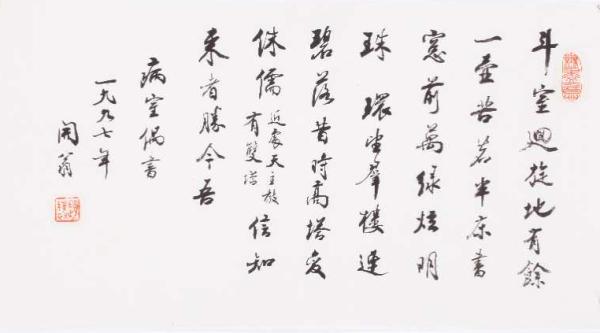 斗室迴旋地有餘
一壺苦茗半床書
窓前萬緑炫明
珠環望羣樓連
碧落昔時高塔变
侏儒
近處天主教
有雙塔
信知
来者勝今吾
病室偶書
一九九七年
開翁